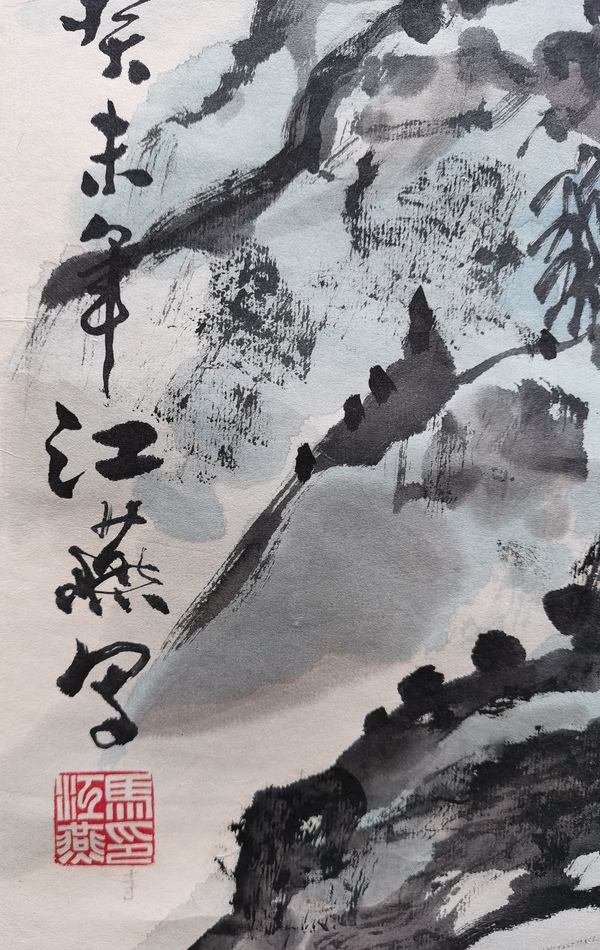 癸未年江燕写
馬江燕印